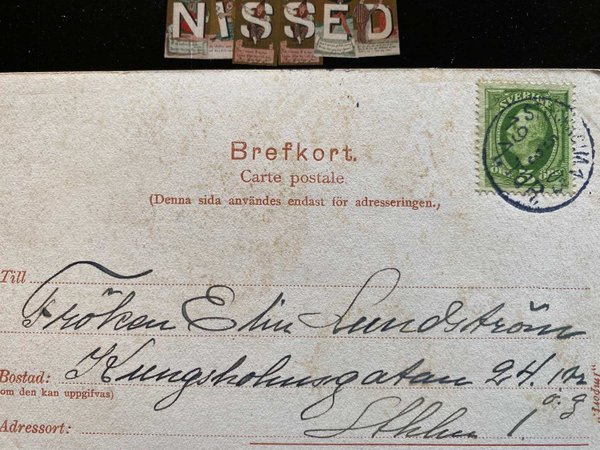 NISSED
SVERIGE
Brefkort.
Carte postale.
(Denna sida användes endast för adresseringen.,
Till
Fröken Elin Lundström
Bostad:
Kungsholmsgatan 24. 1
(om den kan uppgifvas)
ö. g
Adressort:
Sthlm 1.